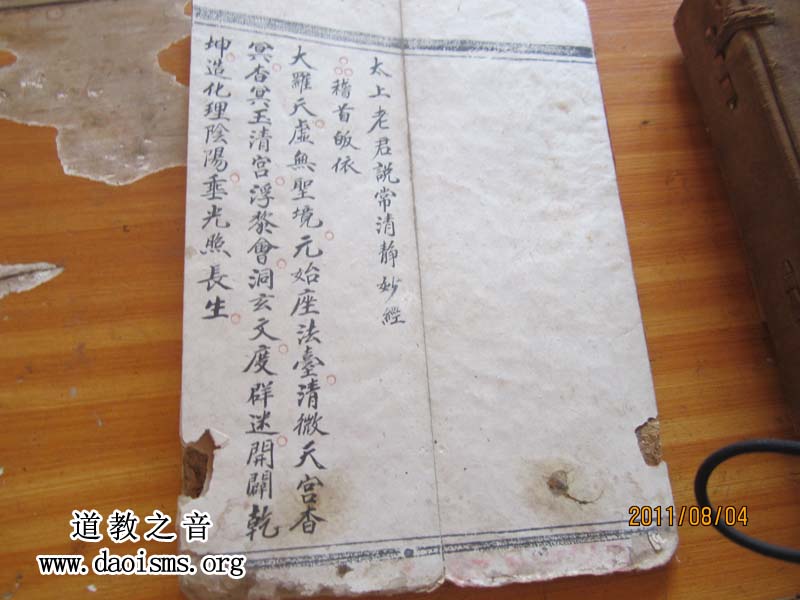 太上老君說常清靜妙經
稽首皈依
大羅天虛無聖境元始座法臺清微天宮杳
冥杏冥玉清宮浮黎會洞玄文度群迷開闢乾
坤造化理陰陽垂光照長生
2011/08/04
道教之音
www.daoisms.org